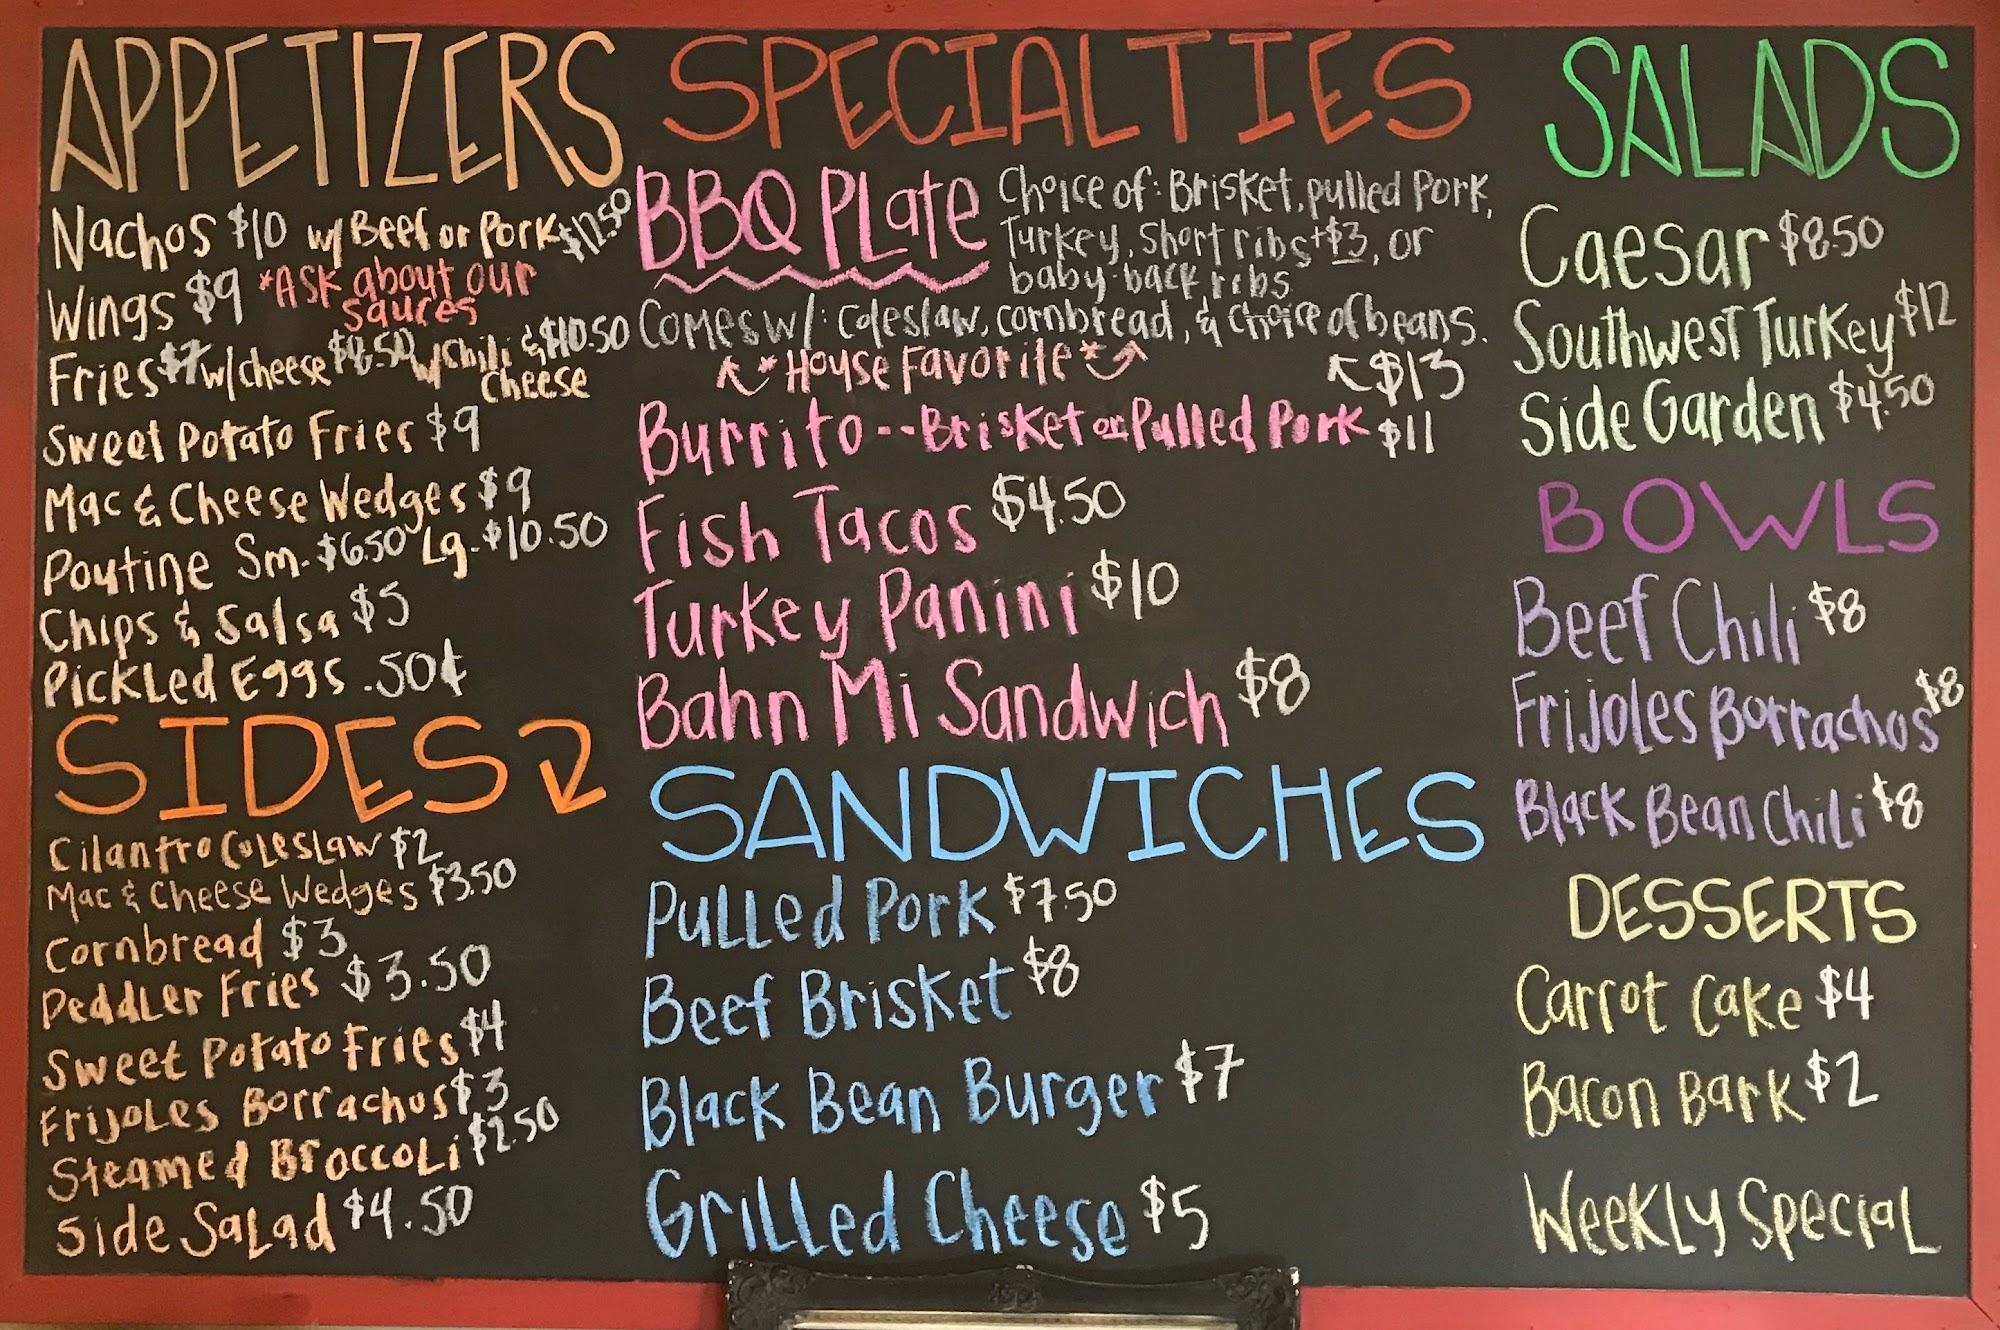 APPETIZERS
Nachos $10 w/ Beef or Pork $12.50
Wings $9 *Ask about our
sauces
Fries $7 w/cheese $8.50 w/Chili & $10.50
Cheese
Sweet Potato Fries $9
Mac & Cheese Wedges $9
Poutine Sm. $6.50 Lg. $10.50
Chips & Salsa $5
Pickled Eggs .50¢
SIDES
Cilantro Coleslaw $2
Mac & Cheese Wedges $3.50
Cornbread $3
Peddler Fries $3.50
Sweet Potato Fries $4
Frijoles Borrachos $3
Steamed Broccoli $2.50
Side Salad $4.50
SPECIALTIES
BBQ Plate Choice of: Brisket, pulled pork,
Turkey, Short ribs +$3, or
baby-back ribs
Comes w/: Coleslaw, cornbread, & choice of beans.
*House Favorite* $13
Burrito--Brisket or Pulled Pork $11
Fish Tacos $4.50
Turkey Panini $10
Bahn Mi Sandwich $8
SANDWICHES
Pulled Pork $7.50
Beef Brisket $8
Black Bean Burger $7
Grilled Cheese $5
SALADS
Caesar $8.50
Southwest Turkey $12
Side Garden $4.50
BOWLS
Beef Chili $8
Frijoles Borrachos $8
Black Bean Chili $8
DESSERTS
Carrot Cake $4
Bacon Bark $2
Weekly Special